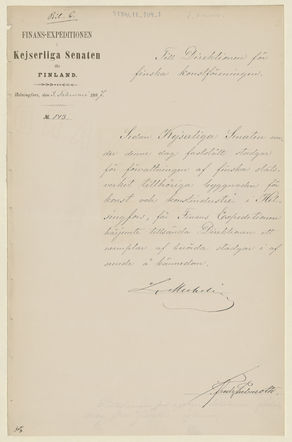 FINANS-EXPEDITIONEN
i
Kejserliga Senaten
för
FINLAND.
Helsingfors, den 3 Februari 1887.
№ 143.
Till Direktionen för
finska konstföreningen.
Sedan Kejserliga Senaten un-
der denne dag fastställt stadgar
för förvaltningen af finska stats-
verket tillhöriga byggnaden för
konst och konstindustri i Hel-
singfors, får Finans Expeditionen
härjemte tillsända Direktionen ett
exemplar af berörda stadgar i af-
seende å kännedom.
L. Mechelin